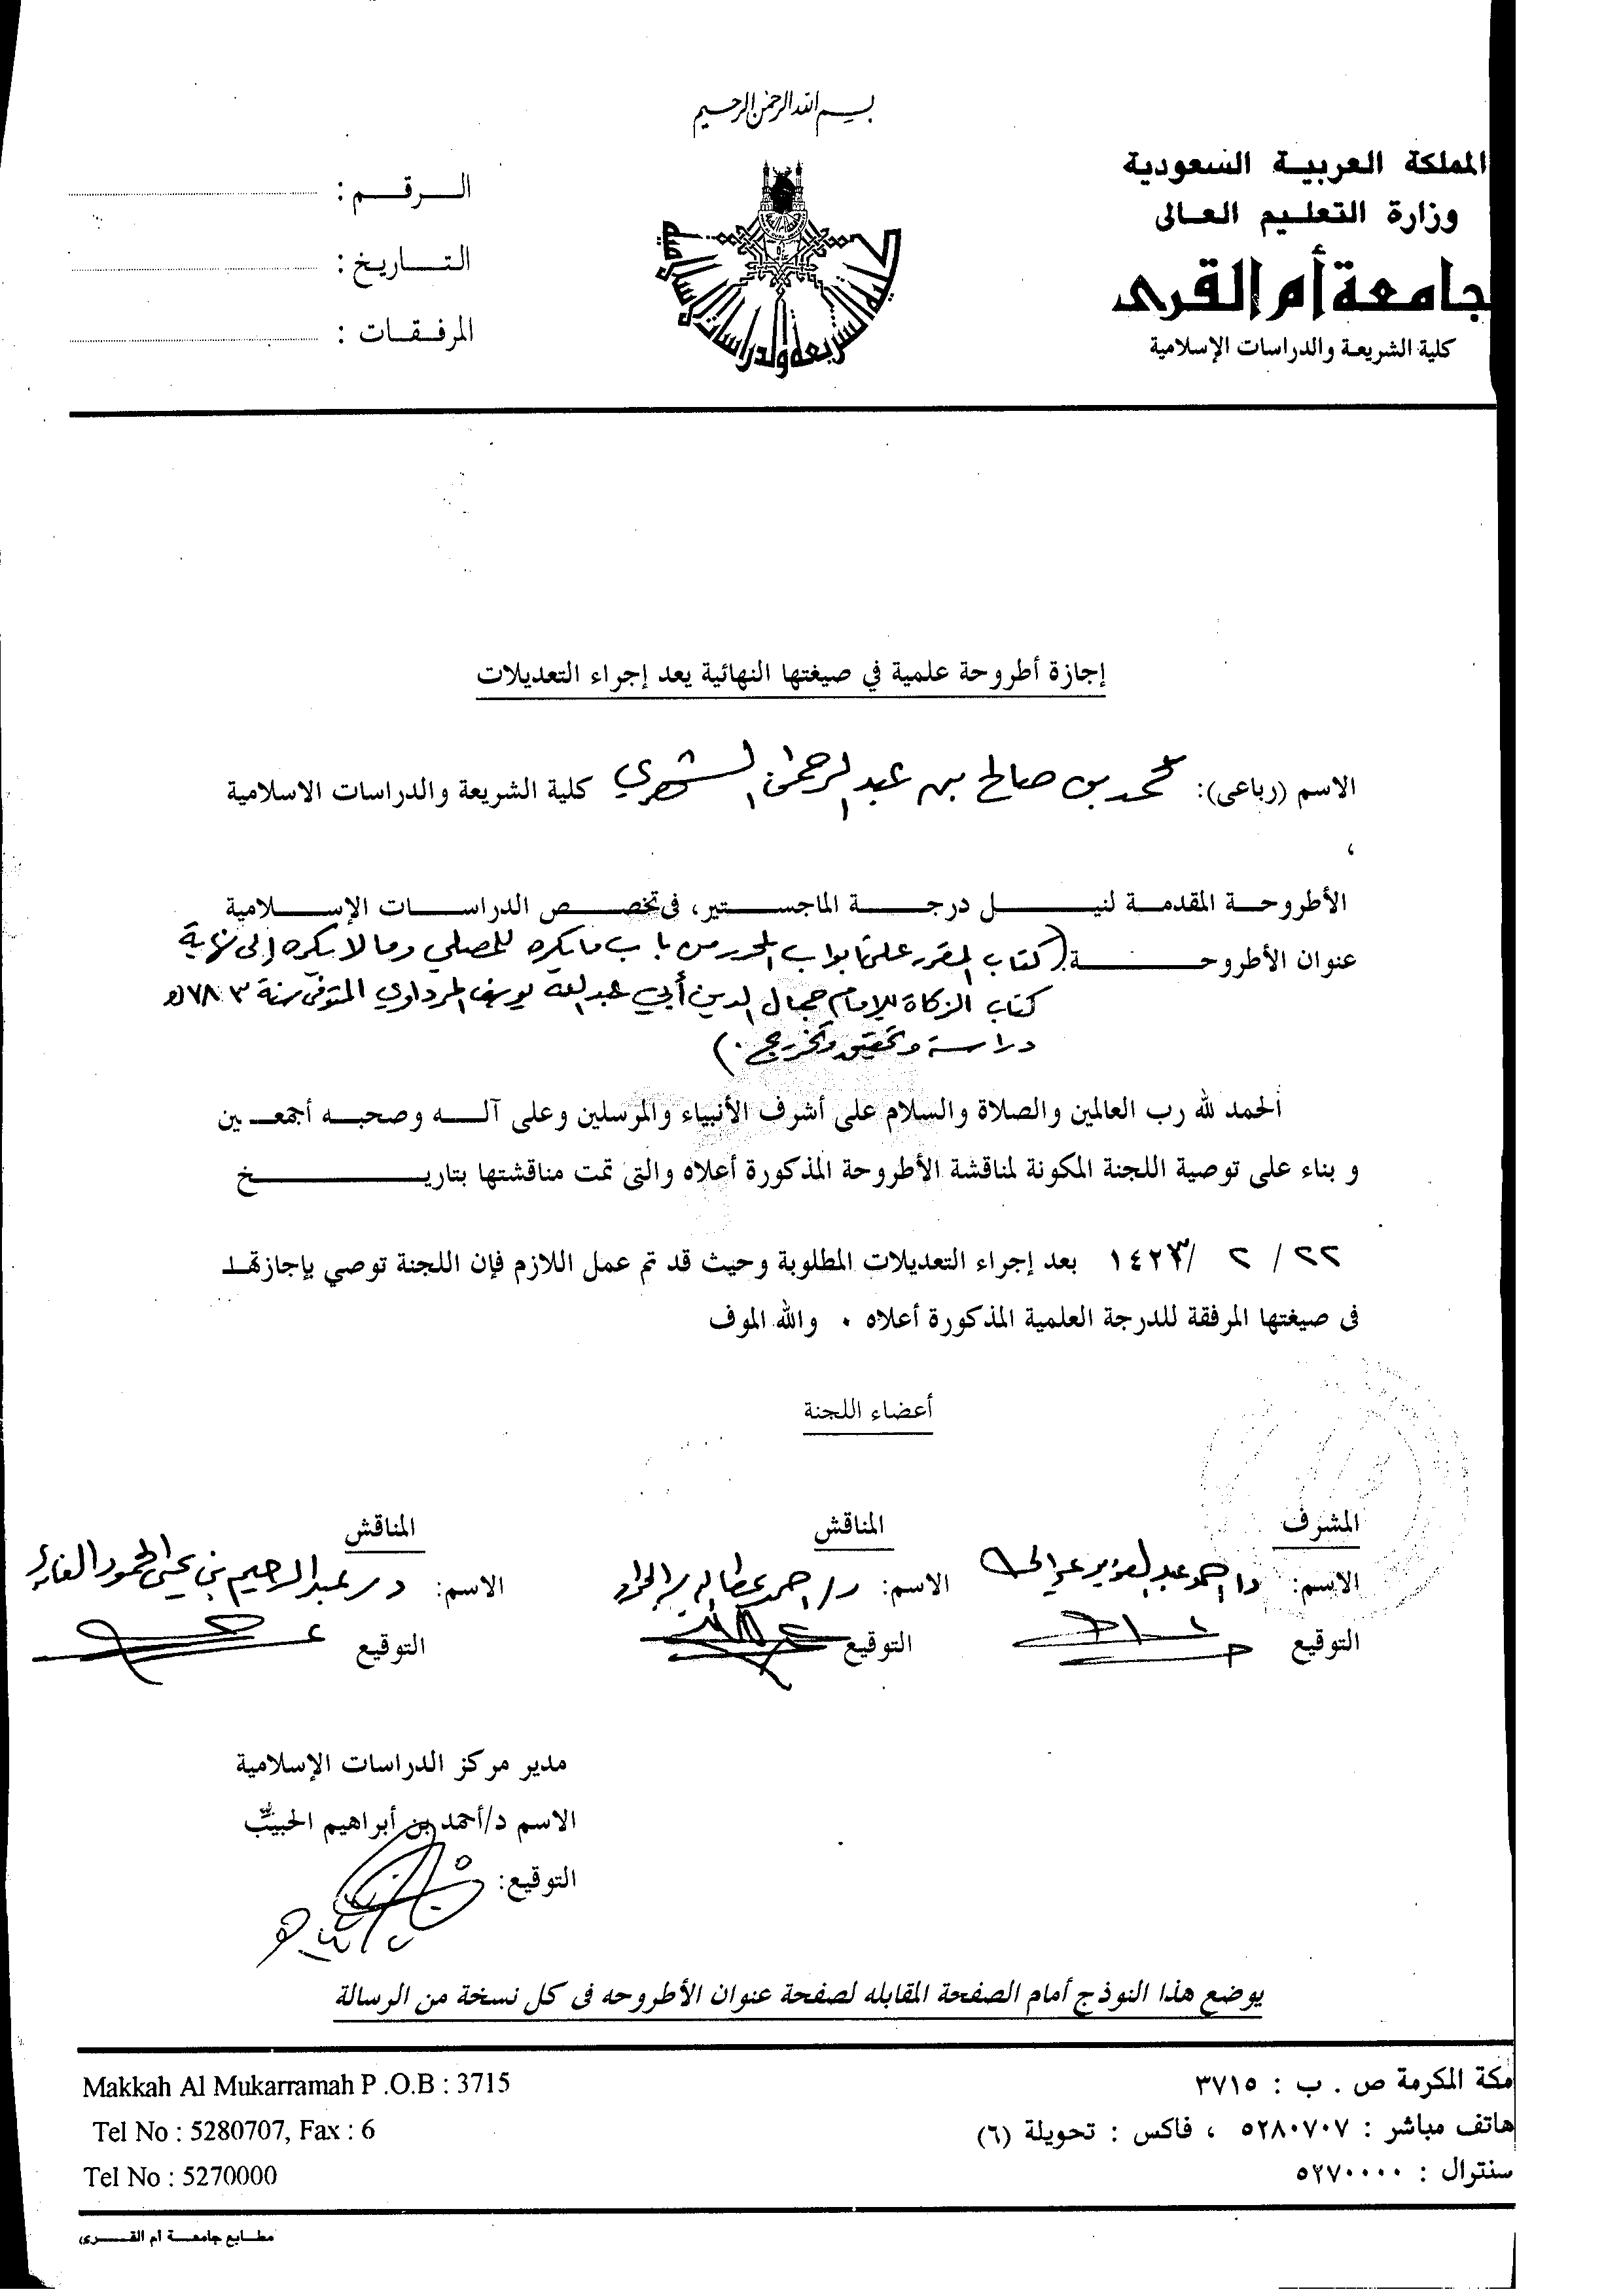 بسم الله الرحمن الرحيم
المملكة العربية السعودية
وزارة التعليم العالى
جامعة أم القرى
كلية الشريعة والدراسات الإسلامية
الرقم :
التاريخ :
المرفقات :
إجازة أطروحة علمية في صيغتها النهائية يعد إجراء التعديلات
الاسم (رباعى): محمد بن صالح بن عبد الرحمن الشهري كلية الشريعة والدراسات الاسلامية
،
الأطروحة المقدمة لنيل درجة الماجستير، فى تخصص الدراسات الإسلامية
عنوان الأطروحة: (كتاب المقرر على أبواب المحرر من باب ما يكره للمصلي وما لا يكره إلى نهاية
كتاب الزكاة للإمام جمال الدين أبي عبد الله يوسف المرداوي المتوفى سنة ٧٨٣هـ
دراسة وتحقيق وتخريج .)
الحمد لله رب العالمين والصلاة والسلام على أشرف الأنبياء والمرسلين وعلى آله وصحبه أجمعين
و بناء على توصية اللجنة المكونة لمناقشة الأطروحة المذكورة أعلاه والتى تمت مناقشتها بتاريخ
٢٢ / ٢ /١٤٢٣ بعد إجراء التعديلات المطلوبة وحيث قد تم عمل اللازم فإن اللجنة توصي بإجازتها
فى صيغتها المرفقة للدرجة العلمية المذكورة أعلاه ٠ والله الموف
أعضاء اللجنة
المشرف
الاسم: د/ احمد عبد العزيز
التوقيع
المناقش
الاسم: د/ احمد عطا
التوقيع
المناقش
الاسم: د/ عبد الرحيم بن يحيى الحمود
التوقيع
مدير مركز الدراسات الإسلامية
الاسم د/أحمد بن أبراهيم الحبيب
التوقيع:
يوضع هذا النوذج أمام الصفحة المقابله لصفحة عنوان الأطروحه فى كل نسخة من الرسالة
مكة المكرمة ص . ب : ٣٧١٥
هاتف مباشر : ٥٢٨٠٧٠٧ ، فاكس : تحويلة (٦)
سنترال : ٥٢٧٠٠٠٠
Makkah Al Mukarramah P .O.B : 3715
Tel No : 5280707, Fax : 6
Tel No : 5270000
مطابع جامعة أم القرى